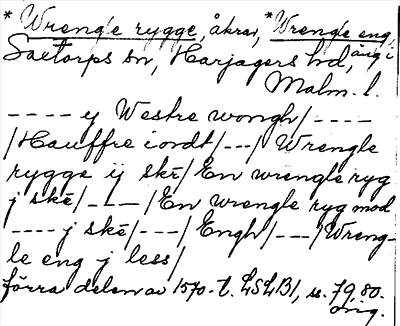 * Wrengle rygge, åkrar, * Wrengle eng, äng i
Saxtorps sn, Harjagers hd,
Malm. l.
---- ij Westre wongh/----
/Hauffre iordt/---/ Wrengle
rygge ij skē/ En wrengle ryg
j skē/---/En wrengle ryg mod
---- j skē/---/ Engh/---/Wreng-
le eng j less/
förra delen av 1570-t. LSLB1, ss. 79, 80.
orig.